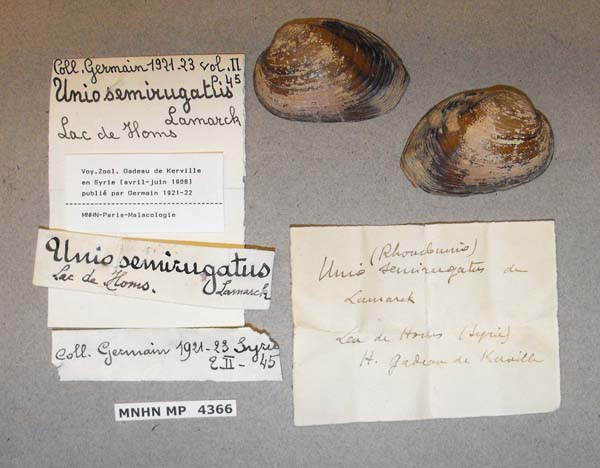 Coll. Germain 1921-23 vol. II
P. 45
Unio semirugatus
Lamarck
Lac de Homs
Voy.Zool. Gadeau de Kerville
en Syrie (avril-juin 1908)
publié par Germain 1921-22
MNHN-Paris-Malacologie
Unio semirugatus
Lac de Homs. Lamarck
Coll. Germain 1921-23 Syrie
II - 45
MNHN MP 4366
(Rhombunio)
Unio semirugatus de
Lamarck
Lac de Homs (Syrie)
H. Gadeau de Kerville